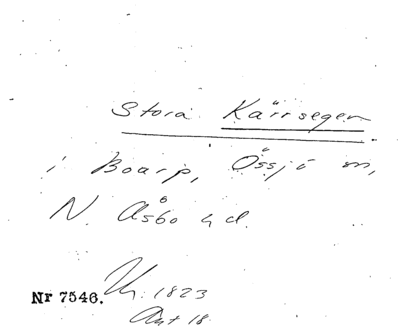 Stora Kärrsegen
i Boarp, Össjö sn,
N. Åsbo hd.
Nr 7546. Uh. 1823
Akt 18